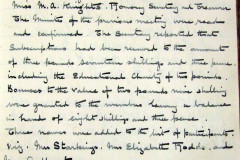 Miss M. A. Knights. Honorary Secretary and Treasurer
The Minutes of the previous meeting were read
and confirmed. The Secretary reported that
Subscriptions had been received to the amount
of three pounds seventeen shillings and five pence
including the Educational Charity of two pounds.
Bonuses to the value of two pounds nine shillings
were granted to the members leaving a balance
in hand of eight shillings and three pence.
Three names were added to the list of participants.
Mrs Elizabeth and